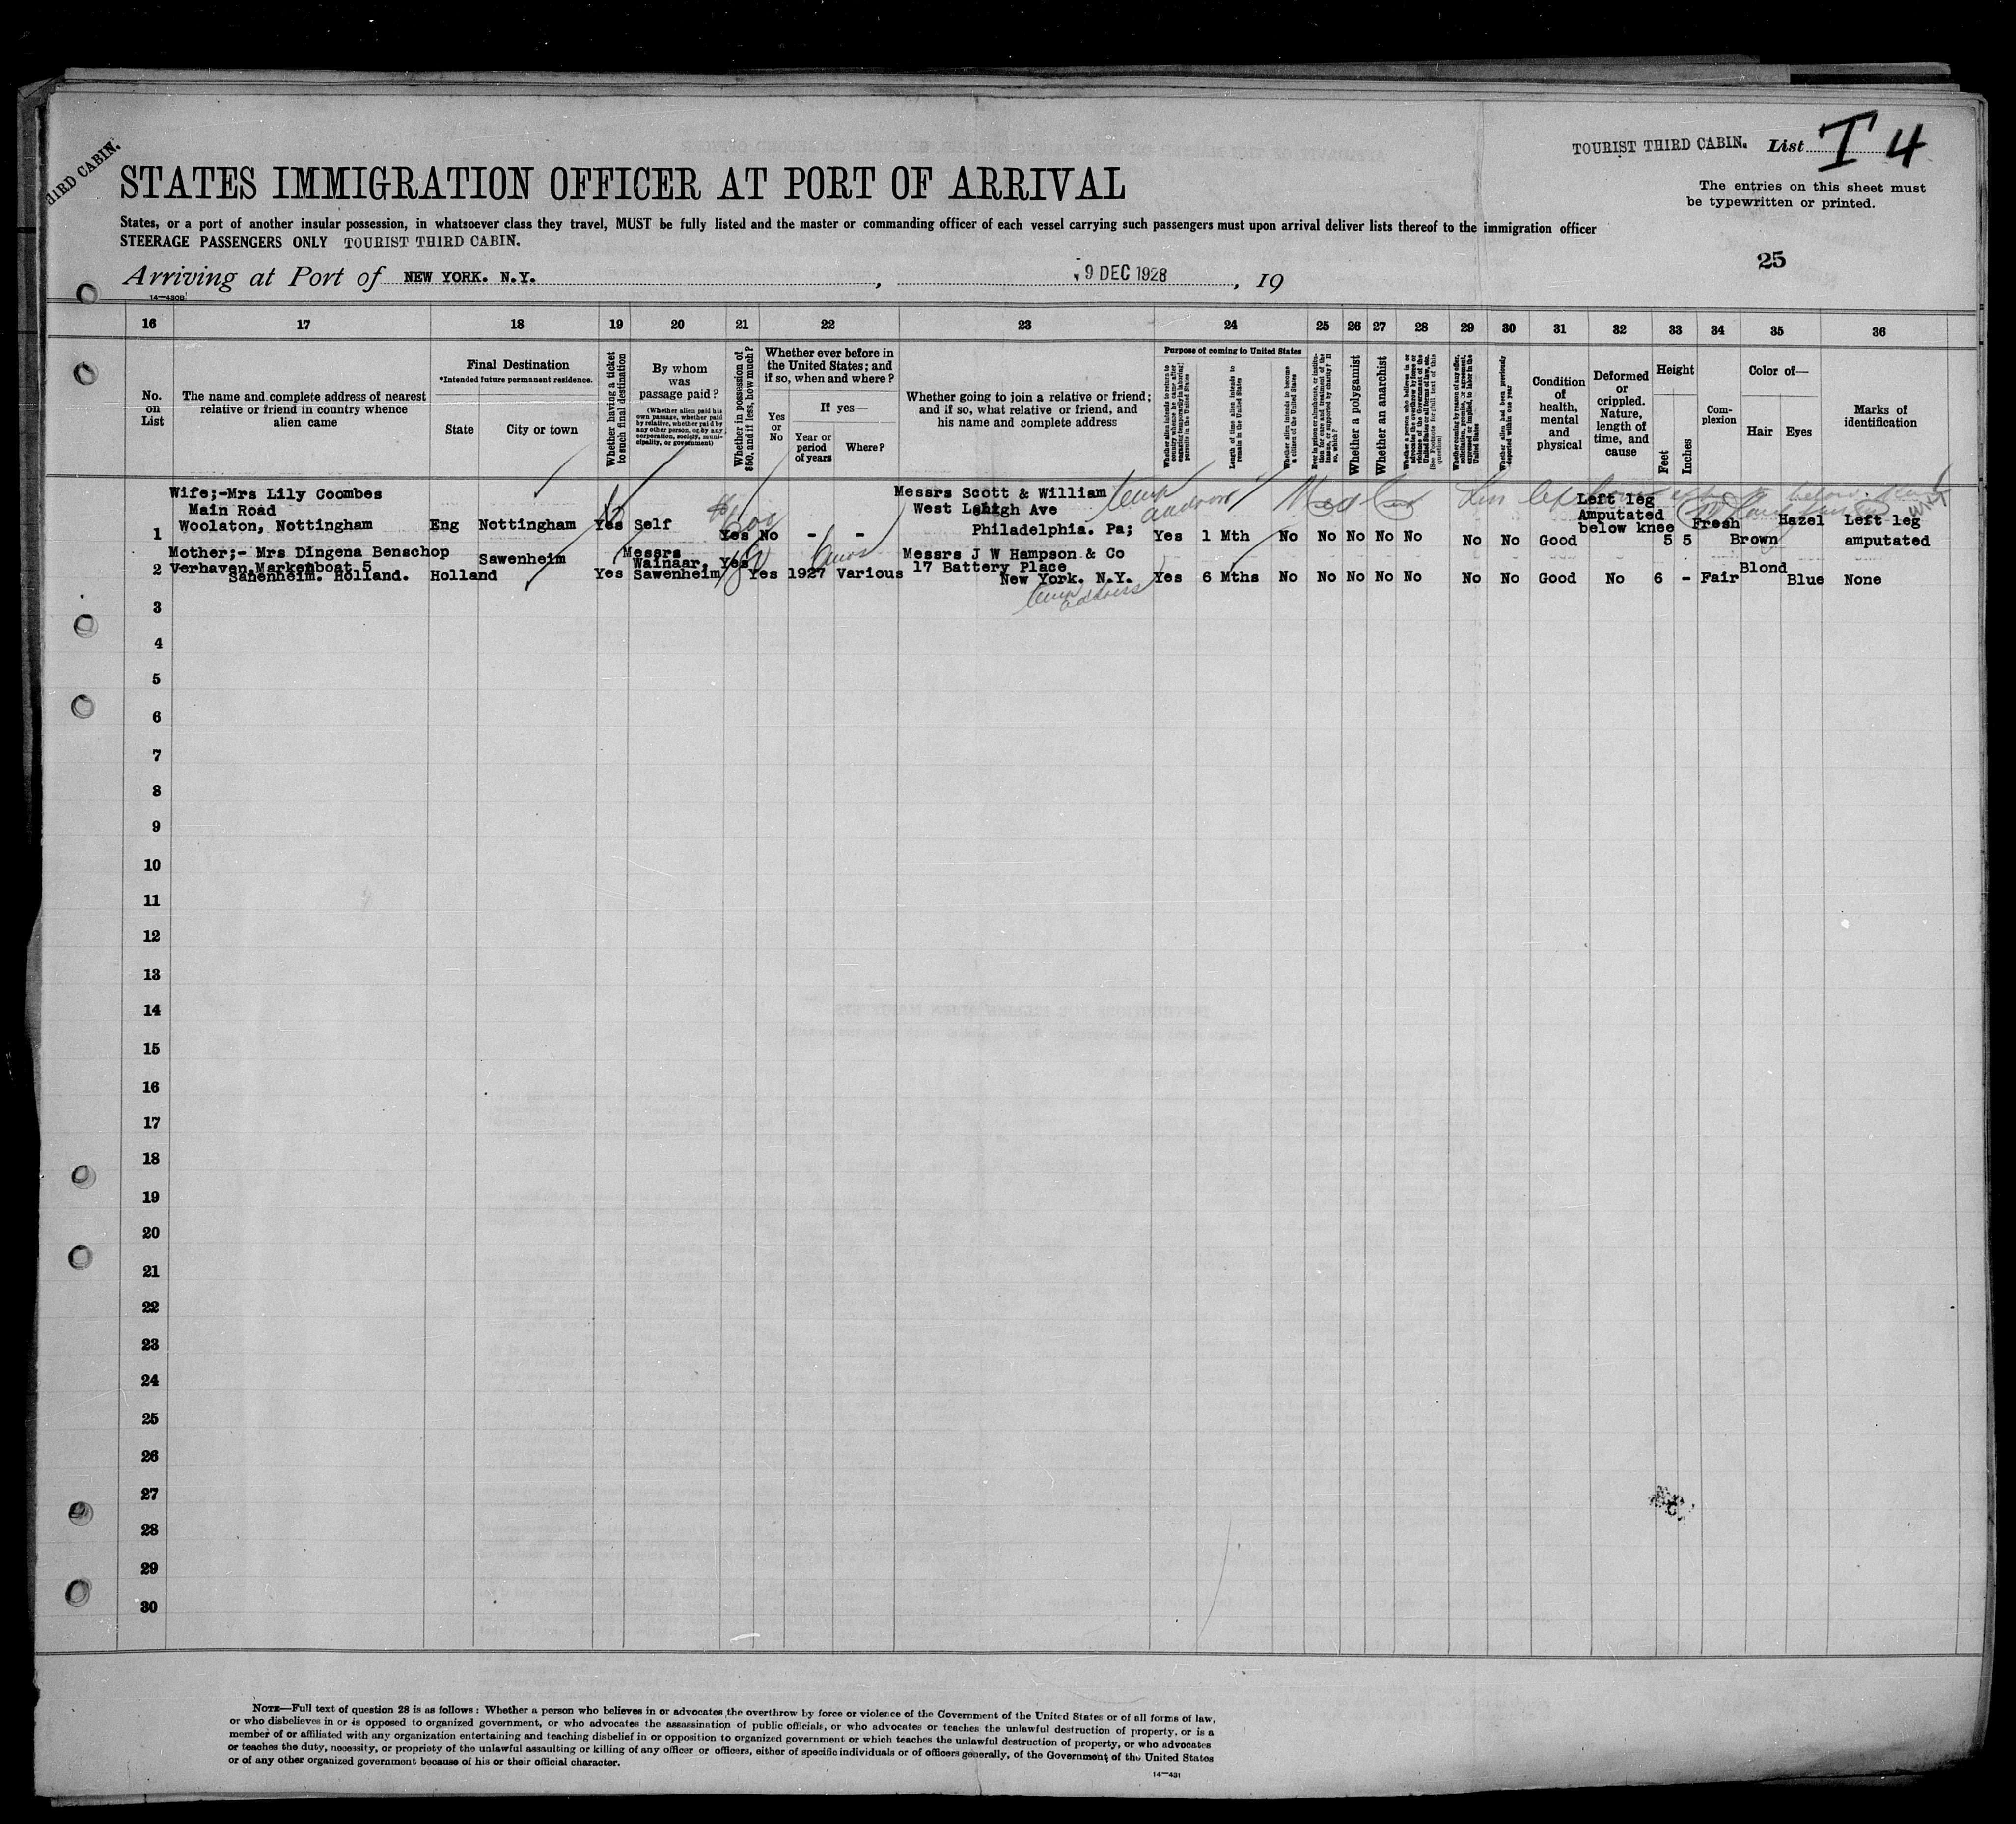 TOURIST THIRD CABIN. List I 4
THIRD CABIN.
STATES IMMIGRATION OFFICER AT PORT OF ARRIVAL
The entries on this sheet must
be typewritten or printed.
States, or a port of another insular possession, in whatsoever class they travel, MUST be fully listed and the master or commanding officer of each vessel carrying such passengers must upon arrival deliver lists thereof to the immigration officer
STEERAGE PASSENGERS ONLY TOURIST THIRD CABIN.
25
Arriving at Port of NEW YORK. N.Y. , 9 DEC 1928 , 19
14-430B
16 17 18 19 20 21 22 23 24 25 26 27 28 29 30 31 32 33 34 35 36
No.
on
List
The name and complete address of nearest
relative or friend in country whence
alien came
Final Destination
*Intended future permanent residence.
State
City or town
Whether having a ticket
to such final destination
By whom
was
passage paid?
(Whether alien paid his
own passage, whether paid
by relative, whether paid by
any other person, or by any
corporation, society, muni-
cipality, or government)
Whether in possession of
$50, and if less, how much?
Whether ever before in
the United States; and
if so, when and where?
Yes
or
No
If yes—
Year or
period
of years
Where?
Whether going to join a relative or friend;
and if so, what relative or friend, and
his name and complete address
Purpose of coming to United States
Whether alien intends to return to
country whence he came after
engaging temporarily in laboring
pursuits in the United States
Length of time alien intends to
remain in the United States
Whether alien intends to become
a citizen of the United States
Ever in prison or almshouse, or institu-
tion for care and treatment of the
insane, or supported by charity? If
so, which?
Whether a polygamist
Whether an anarchist
Whether a person who believes in or
advocates the overthrow by force or
violence of the Government of the
United States or all forms of law, etc.
(See Footnote for full text of this
question)
Whether coming by reason of any offer,
solicitation, promise, or agreement,
expressed or implied, to labor in the
United States
Whether alien had been previously
deported within one year
Condition
of
health,
mental
and
physical
Deformed
or
crippled.
Nature,
length of
time, and
cause
Height
Feet
Inches
Com-
plexion
Color of—
Hair
Eyes
Marks of
identification
Wife;-Mrs Lily Coombes
Main Road
1 Woolaton, Nottingham Eng Nottingham Yes Self Yes No - -
Messrs Scott & William
West Lehigh Ave
Philadelphia. Pa;
temp
address
Yes 1 Mth No No No No No No No Good
Left leg
Amputated
below knee
5 5 Fresh Brown Hazel
Left leg
amputated
Mother;- Mrs Dingena Benschop
2 Verhaven Markenboat 5
Sahenheim. Holland. Holland Sawenheim Yes
Messrs
Wainaar,
Sawenheim
Yes Yes 1927 Various
Messrs J W Hampson & Co
17 Battery Place
New York. N.Y.
temp
address
Yes 6 Mths No No No No No No No Good No 6 - Fair Blond Blue None
3
4
5
6
7
8
9
10
11
12
13
14
15
16
17
18
19
20
21
22
23
24
25
26
27
28
29
30
NOTE—Full text of question 28 is as follows: Whether a person who believes in or advocates the overthrow by force or violence of the Government of the United States or of all forms of law,
or who disbelieves in or is opposed to organized government, or who advocates the assassination of public officials, or who advocates or teaches the unlawful destruction of property, or is a
member of or affiliated with any organization entertaining and teaching disbelief in or opposition to organized government or which teaches the unlawful destruction of property, or who advocates
or teaches the duty, necessity, or propriety of the unlawful assaulting or killing of any officer or officers, either of specific individuals or of officers generally, of the Government of the United States
or of any other organized government because of his or their official character.
14-431